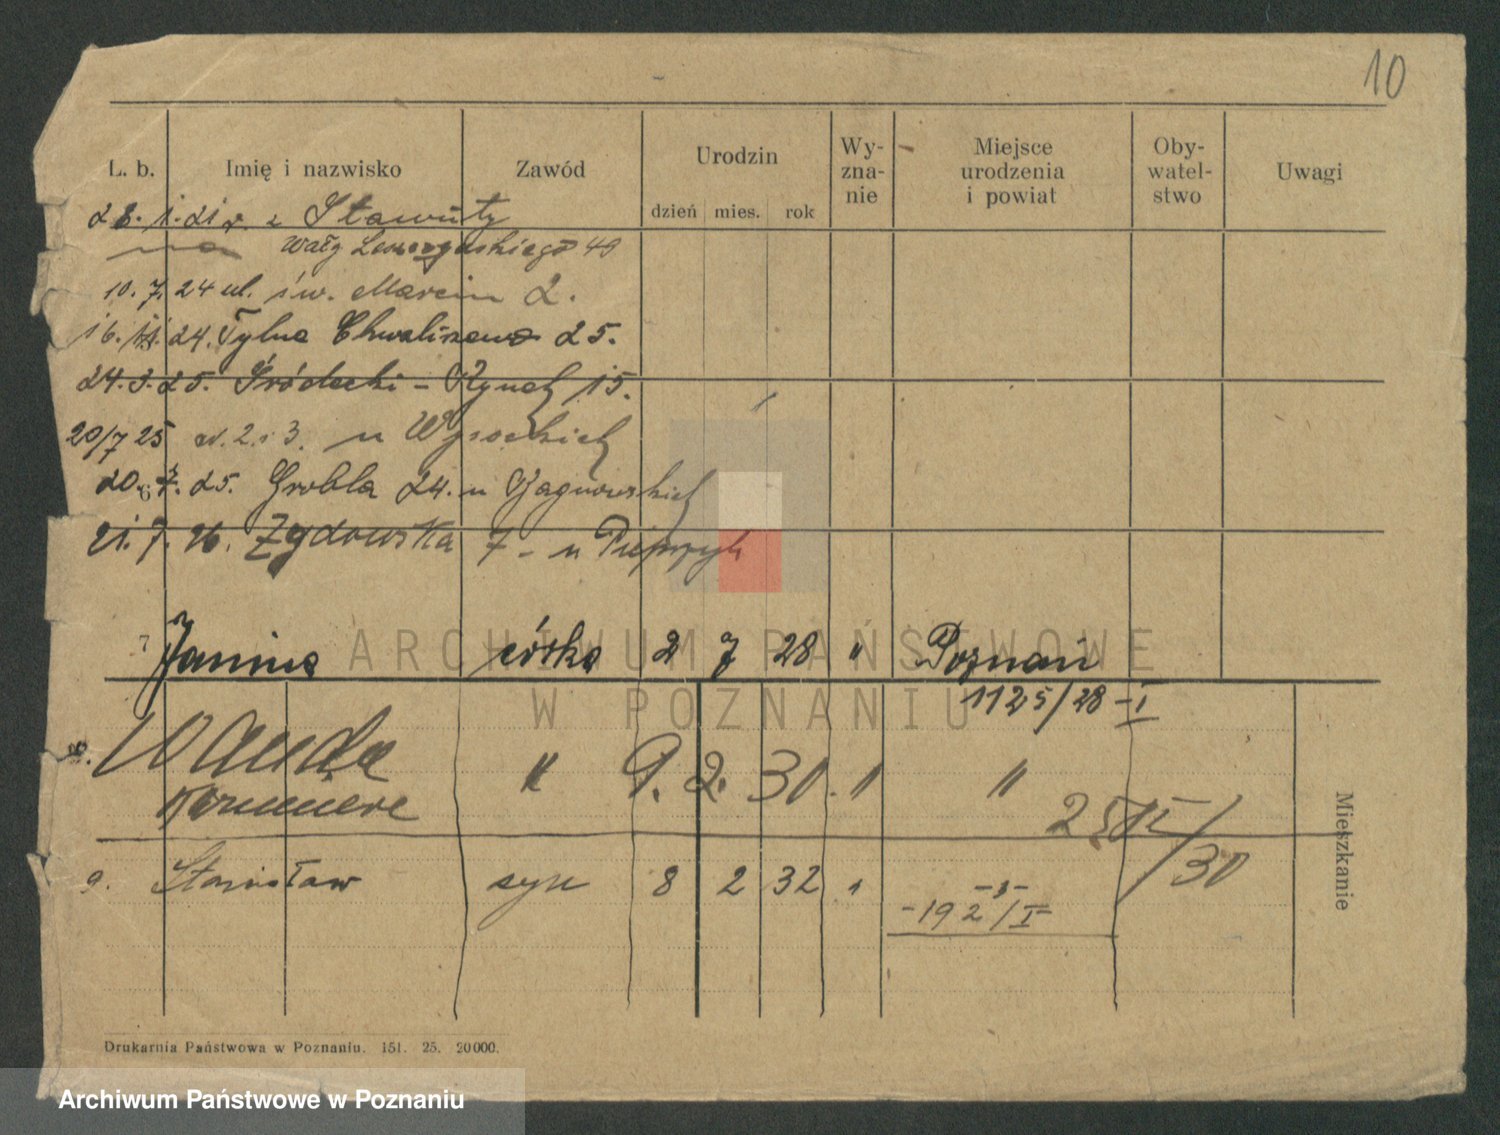 10
L. b. Imię i nazwisko Zawód Urodzin dzień mies. rok Wy-zna-nie Miejsce urodzenia i powiat Oby-watel-stwo Uwagi
28. 1. 21 r. z Sławuty
Wały Leszczyńskiego 49
10. 7. 24 ul. św. Marcin 2.
16. 11. 24. Tylne Chwaliszewo 25.
24. 3. 25. Śródecki - Rynek 15.
20/7 25 2 i 3. u Wysockich
20. 7. 25. Grobla 24. u
6
21. 7. 26. Żydowska 7 - u
7 Janina córka 2 7 28 " Poznań
1125/28 - I
8. Wanda " 9. 2. 30. " "
Kazimiera
25
/30
9. Stanisław syn 8 2 32 " - " -
- 192 / I -
Mieszkanie
Drukarnia Państwowa w Poznaniu. 151. 25. 20000.
ARCHIWUM PAŃSTWOWE
W POZNANIU
Archiwum Państwowe w Poznaniu